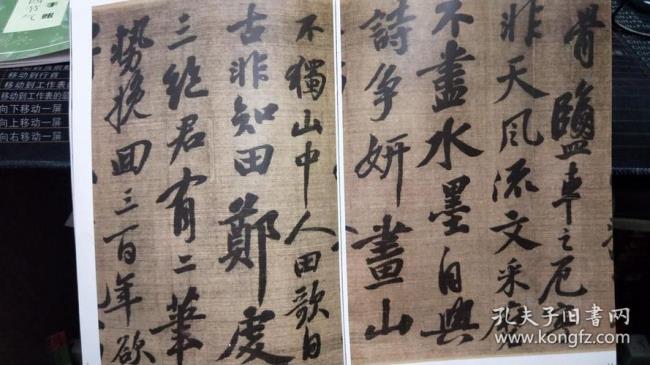 骨鹽車之厄寧
非天風流文采磨
不盡水墨自與
詩爭妍畫山
不獨山中人田歌自
古非知田鄭虔
三絶君有二筆
勢挽回三百年欲
移动到行首
移动到工作表的
向下移动一屏
向上移动一屏
向右移动一屏
孔夫子旧书网